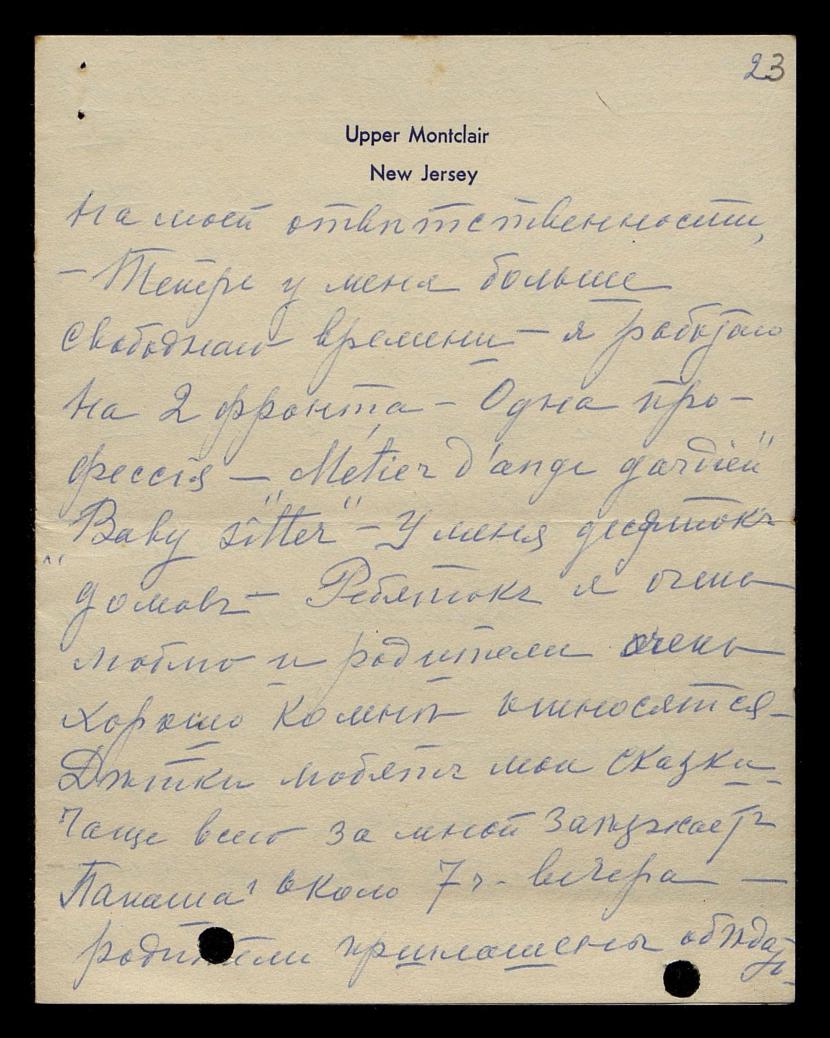 23
Upper Montclair
New Jersey
На моей отвѣтственности,
– Теперь у меня больше
свободнаго времени – я работаю
на 2 фронта – Одна про-
фессія – "Métier d'ange gardien"
"Baby sitter" – У меня десятокъ
домовъ – Ребятокъ я очень
люблю и родители очень
хорошо ко мнѣ относятся –
Дѣтки любятъ мои сказки –
Чаще всего за мной заѣзжаетъ
Папаша около 7 ч. вечера –
родители приглашены обѣдать –